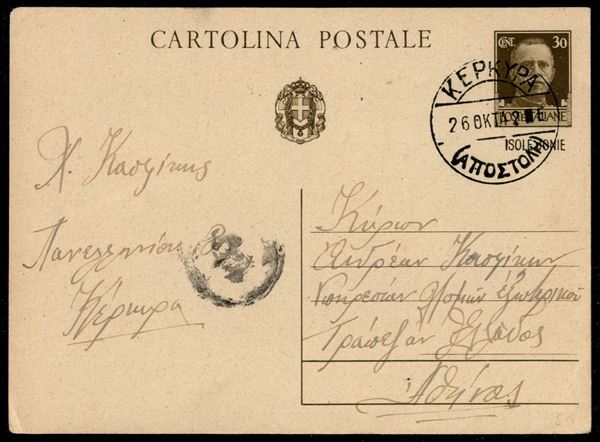 CARTOLINA POSTALE
CENT. 30
POSTE ITALIANE
ISOLE JONIE
ΚΕΡΚΥΡΑ
26 ΟΚΤ 42
(ΑΠΟΣΤΟΛΗ)
Χ. Κασφίκης
Πανελληνίου
Κέρκυρα
Κύριον
Ανδρέαν Κασφίκην
Υπηρεσίαν Νομισμ. Εξωτερικού
Τράπεζαν Ελλάδος
Αθήνας